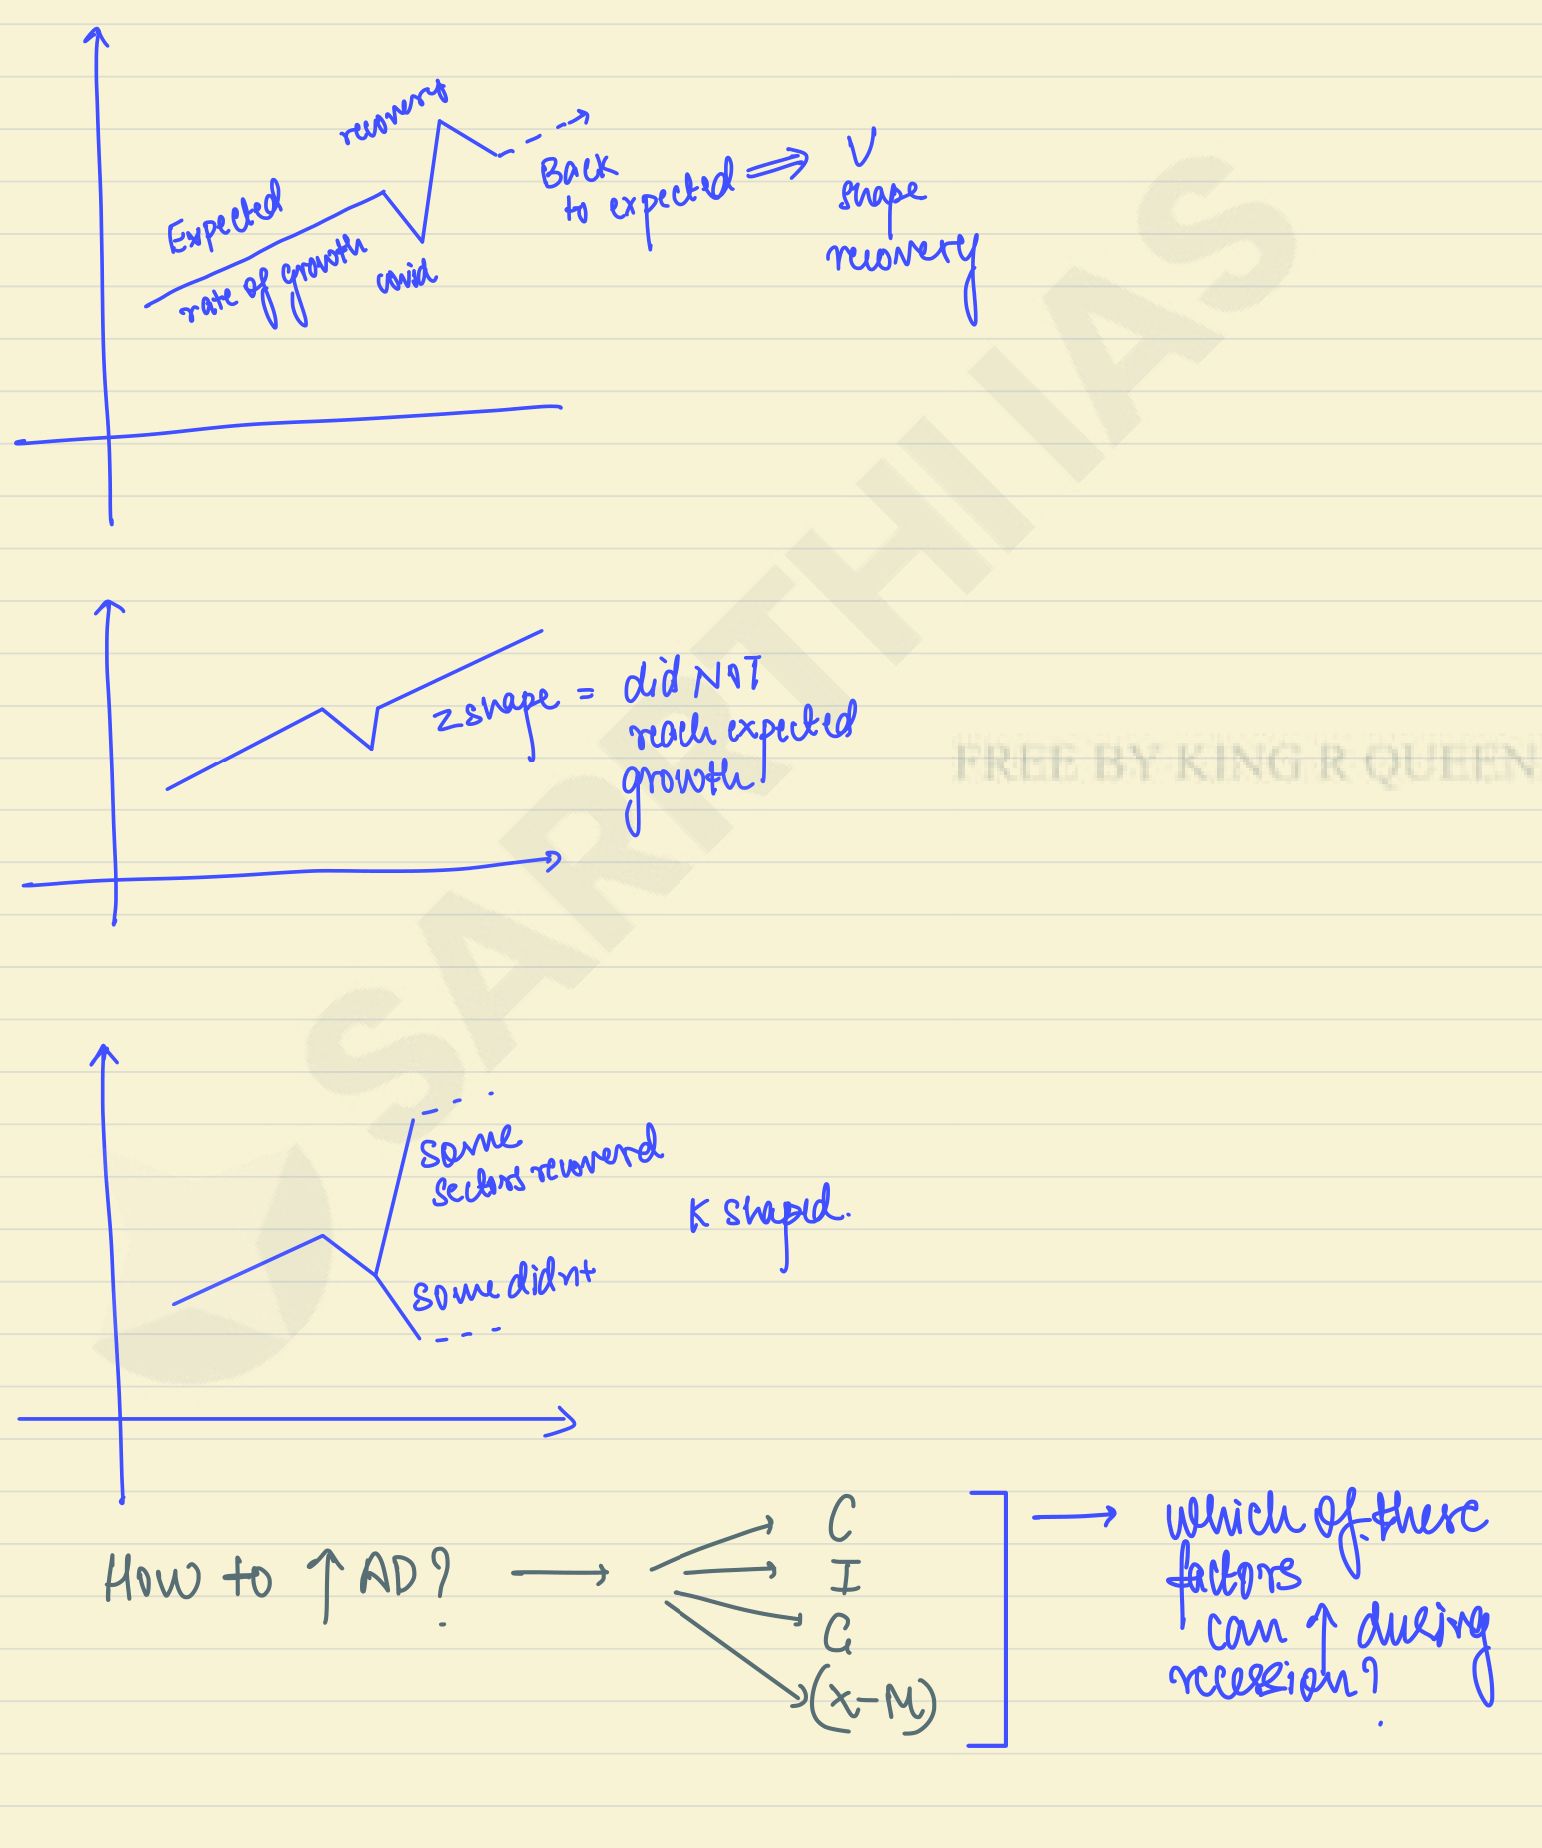 recovery
Expected
rate of growth
covid
Back
to expected
V
shape
recovery
z shape = did NOT
reach expected
growth
FREE BY KING R QUEEN
SARTHI IAS
some
sectors recovered
K shaped.
some didnt
How to ↑ AD? → C
I
G
(X-M)
→ which of these
factors
can ↑ during
recession?